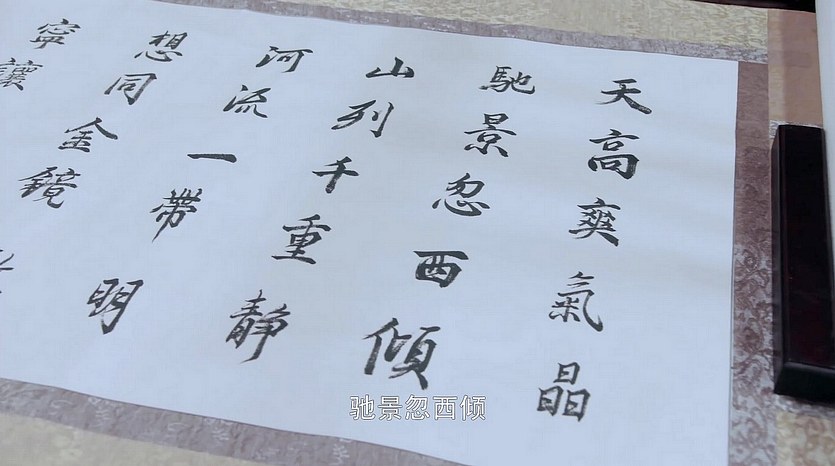 天高爽氣晶
馳景忽西傾
山列千重靜
河流一帶明
想同金鏡
寧讓
驰景忽西倾